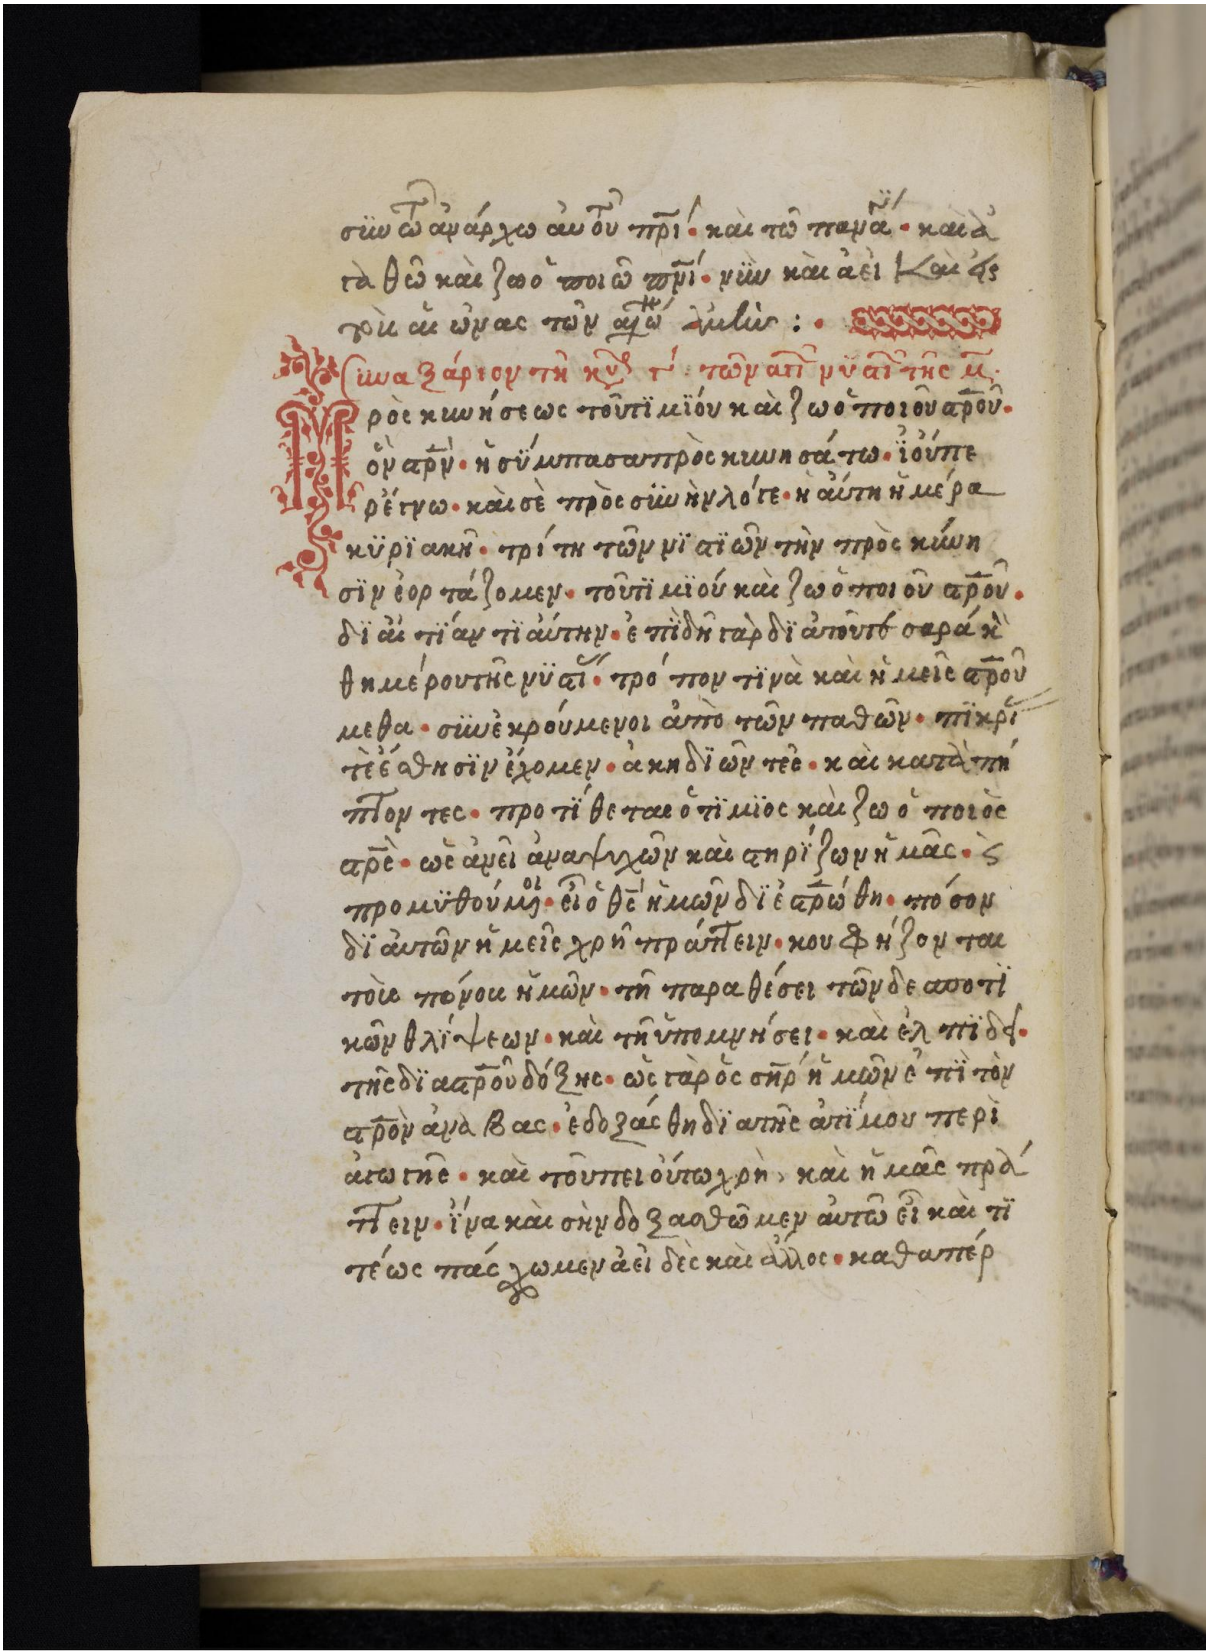 σϋν τῶ ἀνάρχω αὐτοῦ πρί· καὶ τῶ παναγί· καὶ ἀ
γαθῶ καὶ ζωὸ ποιῶ πνί· νῦν καὶ ἀεὶ καὶ εἰς
τοὺς αἰῶνας τῶν αἰώνων ἀμὴν :·
Συναξάριον τῆ κυ γ τῶν ἁγί νϋστι τῆς μ.
Πρὸς κυνήσεως τοῦ τϊμϊού καὶ ζωὸ ποιοῦ στροῦ·
ὃν στρν· ἡ σΰμπασα προς κυνησάτω· ϊοὐπε
ρέτνω· καὶ σὲ πρὸς σϋν ἡνλότε· ἡ αύτη ἡμέρα
κϋρϊακῆ· τρίτη τῶν νϊστϊῶν τὴν πρὸς κύνη
σϊν ἑορτάζομεν· τοῦ τϊμϊού καὶ ζωὸ ποιοῦ στροῦ·
δϊ αἰτϊάν τϊ αύτην· ἐπϊδῆ γὰρ δϊ ἁ τοῦ τεσσαράκ
θημέρου τῆς νϋστί· τρόπον τϊνὰ καὶ ἡμεῖς στροῦ
μεθα· σϋνἐκρούμενοι ἀπὸ τῶν παθῶν· πϊκρί
τὲ ἔσθησϊν ἔχομεν· ἀκηδϊῶντές· καὶ καταπή
πτοντες· προτΐθεται ὁ τΐμϊος καὶ ζωὸ ποιὸς
στρὲ· ὡς ἀνεὶ ἀναψυχῶν καὶ στηρΐζων ἡμᾶς· ς
προμϋθούμενοι· εἰ ὁ θς ἡμῶν δϊ ἐστρώθη· πόσον
δϊ αὐτῶν ἡμεῖς χρῆ πράττειν· κουφήζονται
τοὶς πόνοις ἡμῶν· τῆ παραθέσει τῶν δεσποτϊ
κῶν θλΐψεων· καὶ τῆ ὑπομνήσει· καὶ ἐλπΐδι·
τῆς δϊ α στροῦ δόξης· ὡς γὰρ ὁς σηρ ἡμῶν ἐπϊ τὸν
στρὸν ἀναβας· ἐδοξάσθη δϊ α τῆς ἀτΐμου περὶ
άτωτης· καὶ τοῦ πει ούτω χρὴ, καὶ ἡμᾶς πρά
ττειν· ΐνα καὶ σὴν δοξασθῶμεν αὐτῶ εἰ καὶ τϊ
τέως πάσχωμεν ἀεὶ δὲς καὶ ἄλλος· καθαπέρ